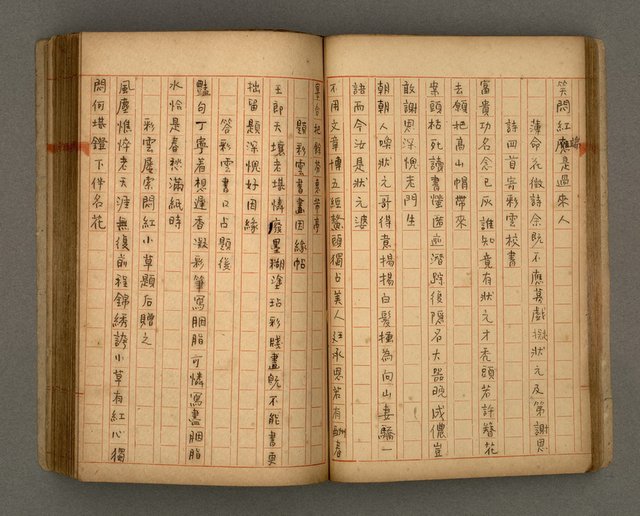 笑問紅塵是過來人
薄命花微詩余既不應募戲擬狀元及第謝恩
詩四首寄彩雲校書
富貴功名念已灰誰知竟有狀元才禿頭若許簪花
去願把高山帽帶來
案頭枯死讀書螢面蹤後隱名大器晚成儂豈
敢謝恩深愧老門生
朝朝人喚狀元哥得意揚揚白髮種為向山妻驕一
語而今汝是狀元婆
不用文章博五經鰲頭獨占美人廷承恩若有酬春
筆台把餘芳東芳亭
題彩雲書畫因緣帖
王郎天壤老堪憐癡墨糊塗玷彩牋畫既不能書更
拙留題深愧好因緣
答彩雲書口占題後
豔句丁寧著想遲香凝彩筆寫胭脂可憐寫盡胭脂
水恰是春愁滿紙時
彩雲屢索問紅小草題后贈之
風塵憔悴老天涯無復前程錦綉誇小草有紅心獨
問何堪鐙下件名花